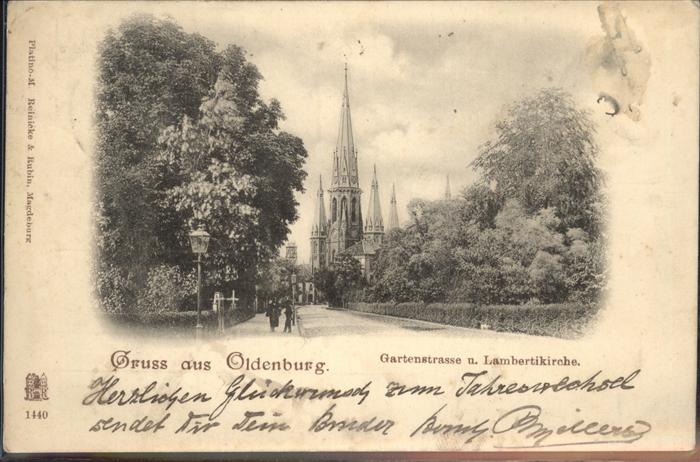 Platino-M Reinicke & Rubin, Magdeburg
Gruss aus Oldenburg.
Gartenstrasse u. Lambertikirche.
1440
Herzlichen Glückwunsch zum Jahreswechsel
sendet Dir Dein Bruder